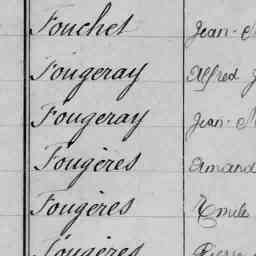 Fouchet Jean-
Fougeray Alfred
Fougeray Jean-
Fougères Amand
Fougères Emile
Fougères Pierre